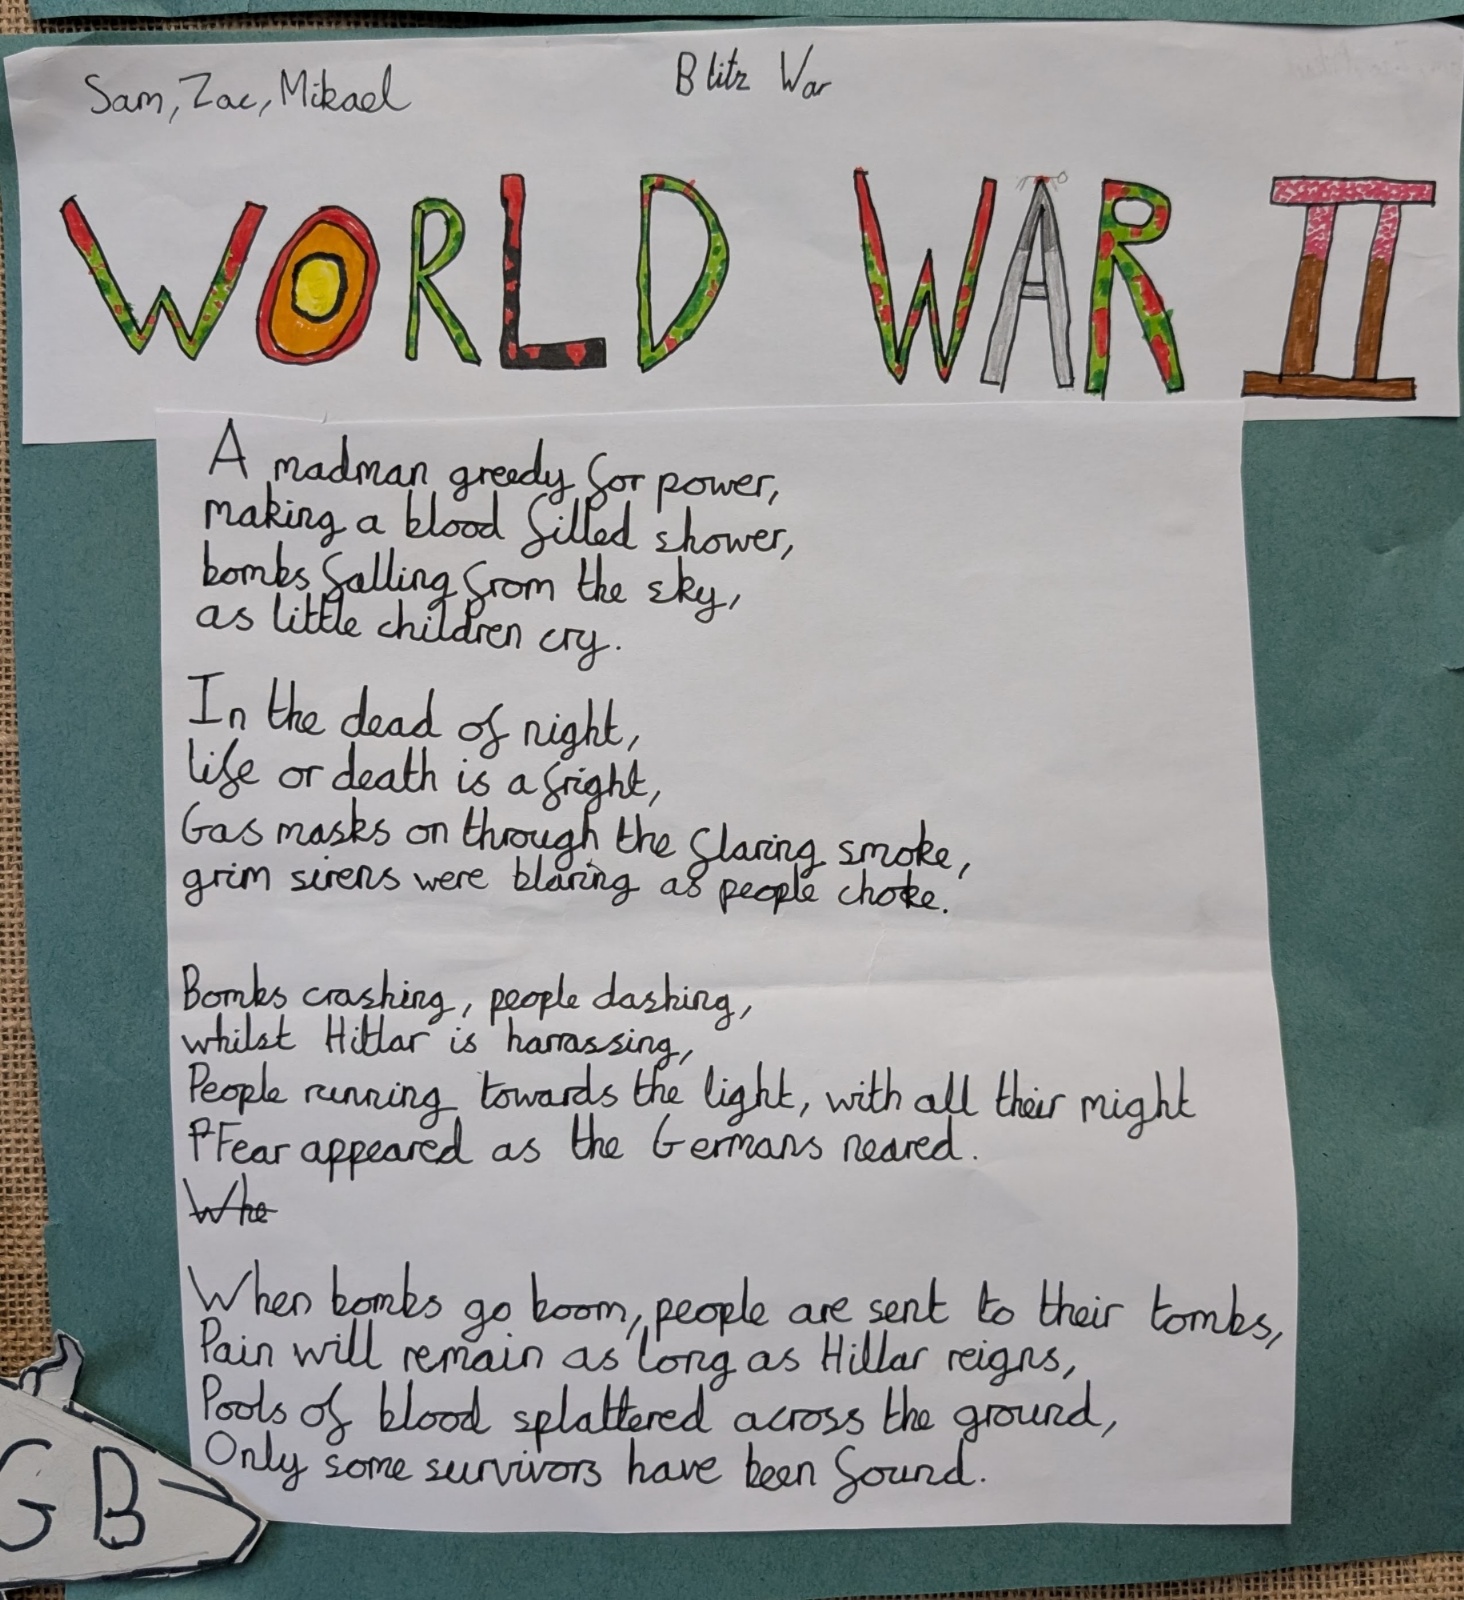 Sam, Zac, Mikael
Blitz War
WORLD WAR II
A madman greedy for power,
making a blood filled shower,
bombs falling from the sky,
as little children cry.
In the dead of night,
life or death is a fright,
Gas masks on through the flaring smoke,
grim sirens were blaring as people choke.
Bombs crashing, people dashing,
whilst Hitlar is harrassing,
People running towards the light, with all their might
Fear appeared as the Germans neared.
Whe
When bombs go boom, people are sent to their tombs,
Pain will remain as long as Hitlar reigns,
Pools of blood splattered across the ground,
Only some survivors have been found.
GB